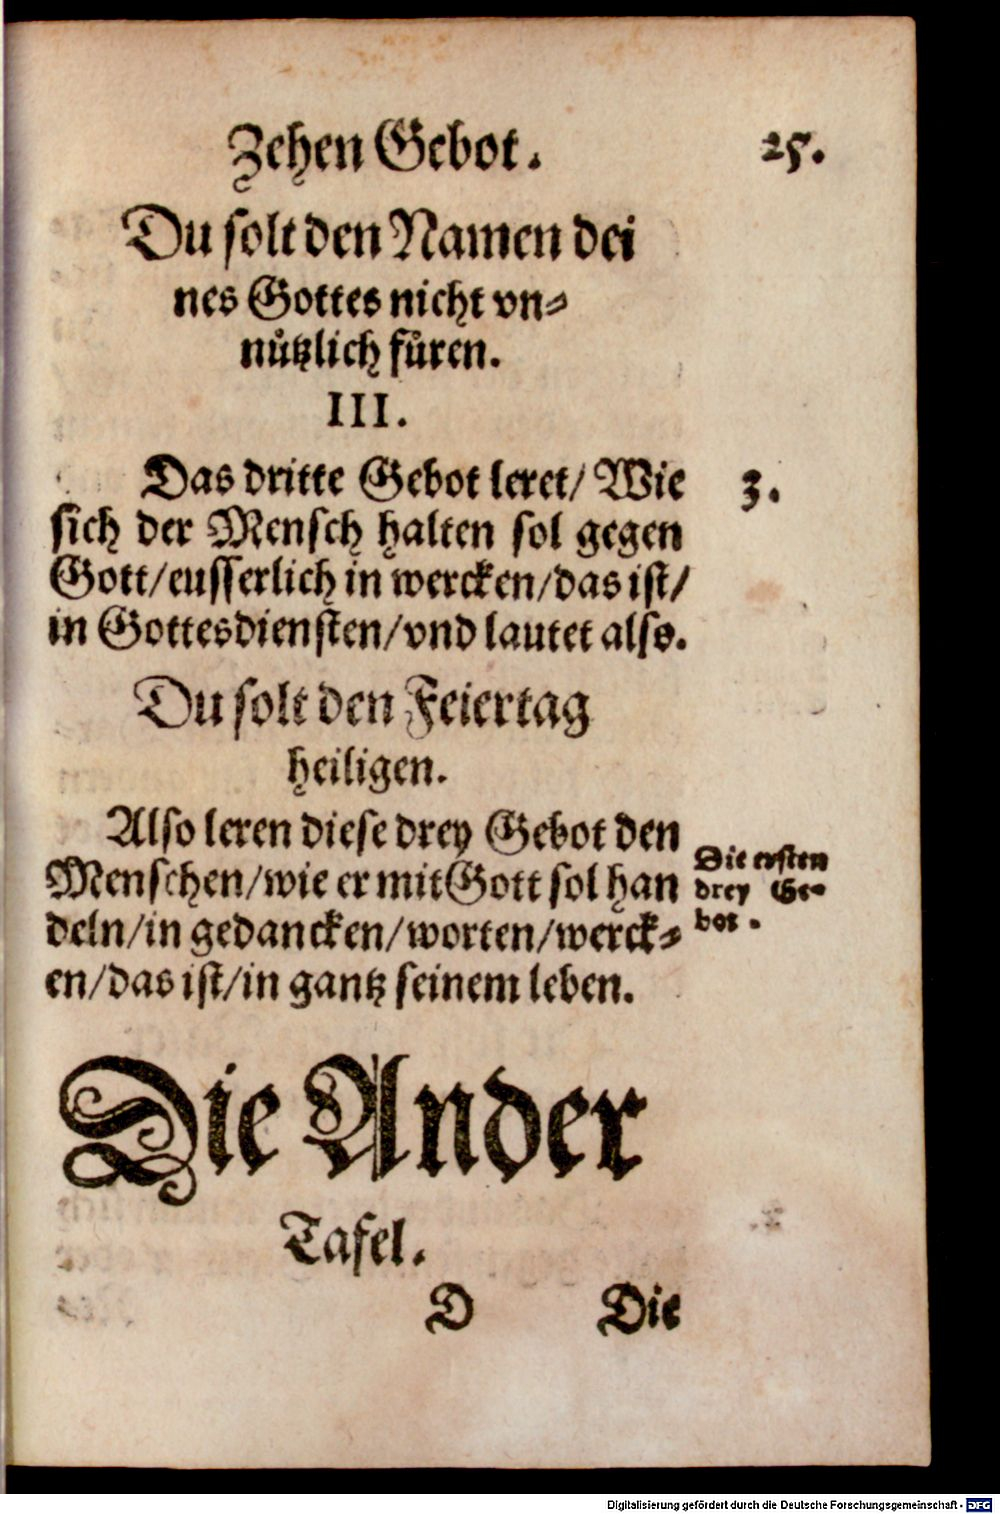 Zehen Gebot. 25.
Du solt den Namen dei
nes Gottes nicht vn⸗
nuͤtzlich fuͤren.
III.
Das dritte Gebot leret/ Wie 3.
sich der Mensch halten sol gegen
Gott/eusserlich in wercken/das ist/
in Gottesdiensten/vnd lautet also.
Du solt den Feiertag
heiligen.
Also leren diese drey Gebot den
Menschen/wie er mit Gott sol han
deln/in gedancken/worten/werck⸗
en/das ist/in gantz seinem leben.
Die ersten
drey Ge⸗
bot.
Die Ander
Tafel.
D Die
Digitalisierung gefördert durch die Deutsche Forschungsgemeinschaft - DFG